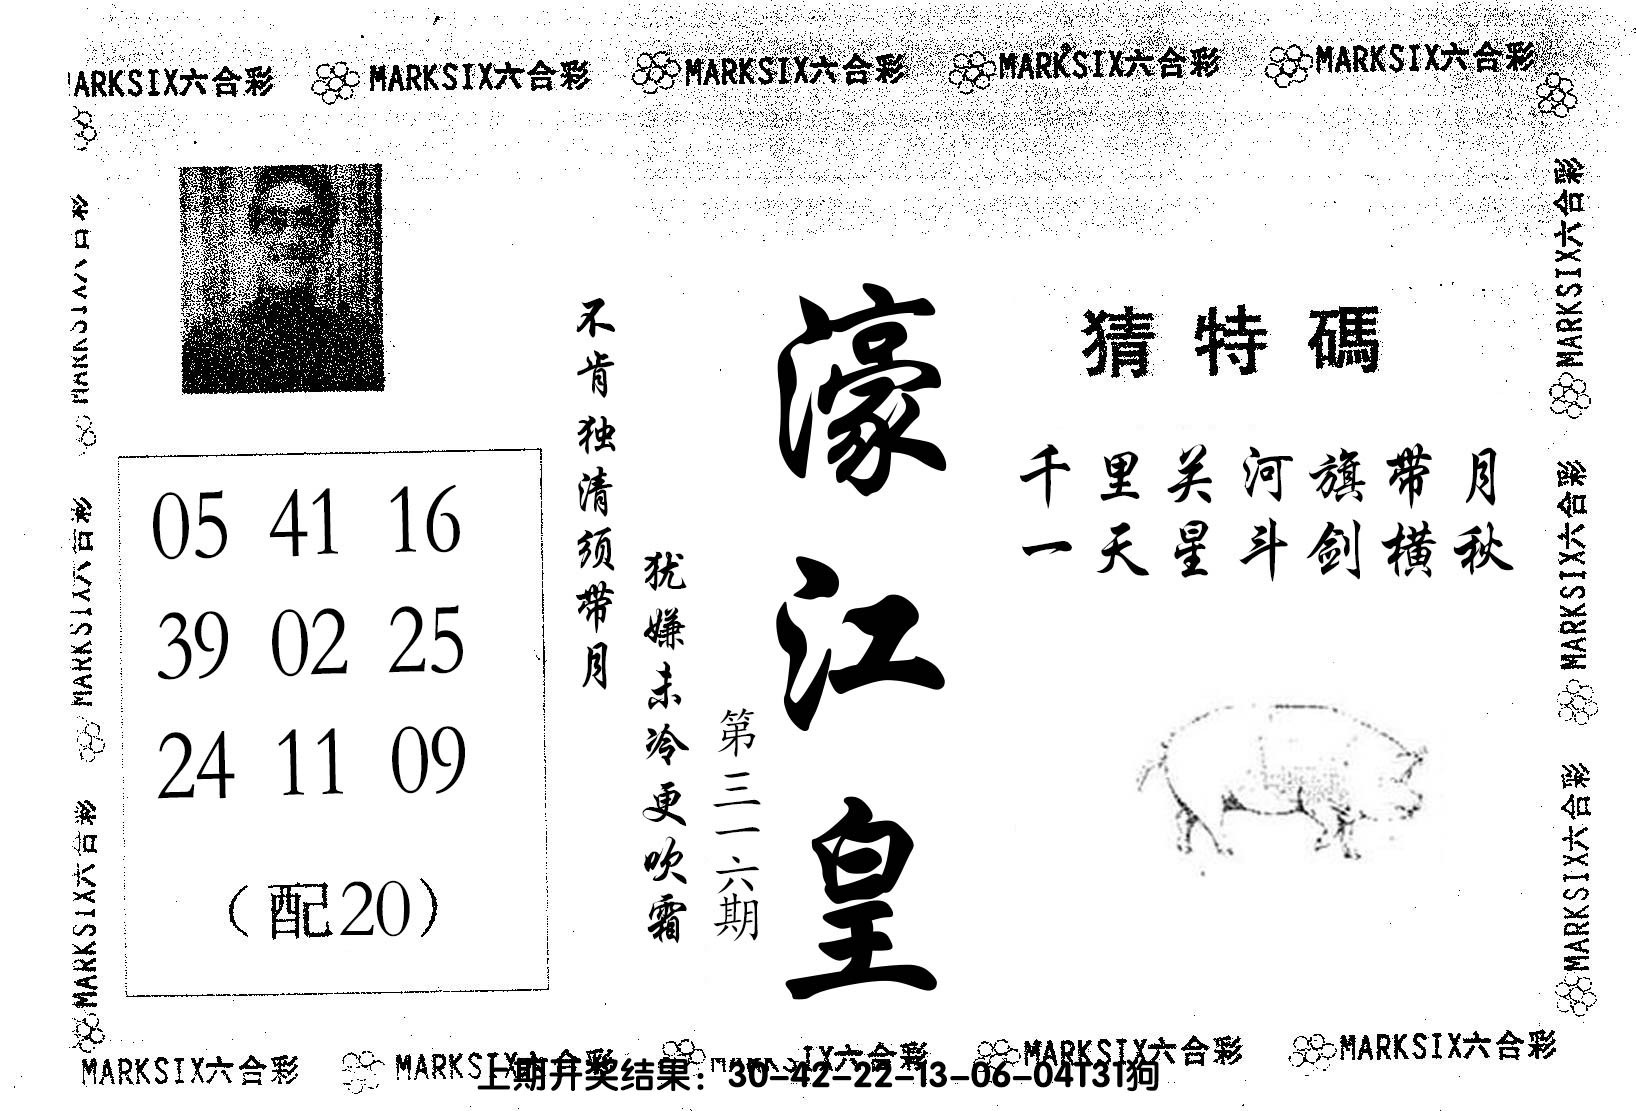 MARKSIX六合彩 MARKSIX六合彩 MARKSIX六合彩 MARKSIX六合彩 MARKSIX六合彩
猜特碼
千里关河旗带月
一天星斗剑横秋
濠江皇
第三一六期
不肯独清须带月
犹嫌未冷更吹霜
05 41 16
39 02 25
24 11 09
（配20）
MARKSIX六合彩
MARKSIX六合彩
MARKSIX六合彩
MARKSIX六合彩
MARKSIX六合彩
MARKSIX六合彩
MARKSIX六合彩 MARKSIX六合彩 MARKSIX六合彩 MARKSIX六合彩
上期开奖结果：30-42-22-13-06-04T31狗